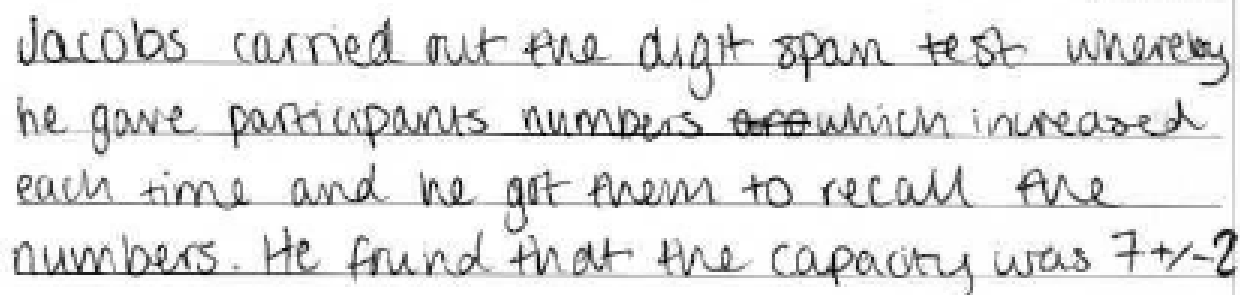 Jacobs carried out the digit span test whereby
he gave participants numbers which increased
each time and he got them to recall the
numbers. He found that the capacity was 7+/-2